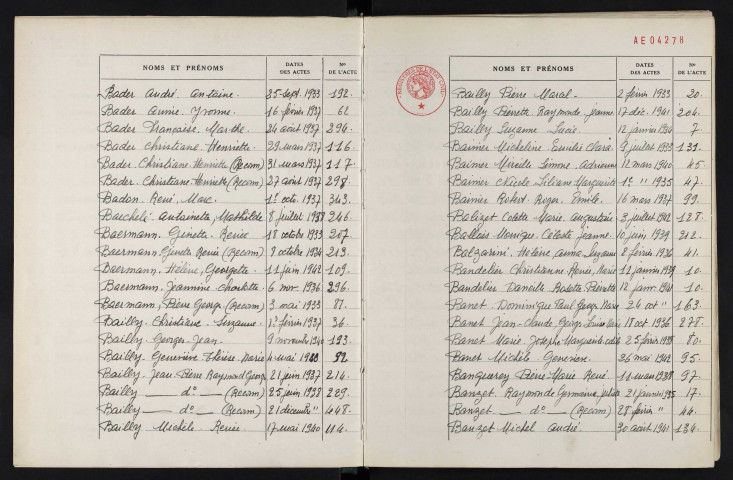 NOMS ET PRÉNOMS DATES DES ACTES Nº DE L'ACTE
Bader André Antoine. 25 sept. 1933 192.
Bader Annie. Yvonne. 16 février 1937 62
Bader Françoise. Marthe. 24 août 1937 294.
Bader Christiane. Henriette. 29 mars 1937 116.
Bader. Christiane. Henriette (Recom) 31 mars 1937 117.
Bader. Christiane. Henriette (Recom) 27 août 1937 298.
Badon. René. Marc. 1er oct. 1937 343.
Baecheli Antoinette, Mathilde 8 juillet 1938 246.
Baermann. Ginette. Renée 18 octobre 1933 207.
Baermann. Ginette Renée (Recom) 9 octobre 1934 213.
Baermann. Hélène. Georgette. 11 juin 1942 109.
Baermann. Jeannine Charlotte. 6 nov. 1936 296.
Baermann, Pierre George (Recom) 3 mai 1933 87.
Bailly. Christiane. Suzanne. 1er février 1937 36.
Bailly. Georges. Jean. 9 novembre 1940 193.
Bailly. Geneviève Thérèse Marie 4 mai
Bailly. Jean. Pierre Raymond George 21 juin 1937 214.
Bailly — do — (Recom) 25 juin 1938 229.
Bailly — do — (Recom) 21 décembre " 448.
Bailly Michèle. Renée. 17 mai 1940 114.
AE04278
NOMS ET PRÉNOMS DATES DES ACTES Nº DE L'ACTE
Bailly Pierre Marcel. 2 février 1933 20.
Bailly Pierrette Raymonde. Jeanne. 17 déc. 1941 204.
Bailly Suzanne Lucie. 12 janvier 7
Bainier Micheline. Clara. 9 juillet 1933 131.
Bainier Mireille Simone. 12 mars 1940 45.
Bainier Nicole Liliane Marguerite 1er " 1935 47.
Bainier Robert. Roger. Émile. 16 mars 1937 99.
Balizet Colette Marie 3 juillet 1942 128.
Ballois Monique. Céleste Jeanne. 10 juin 1939 212.
Balzarini. Hélène Anna Suzanne 2 février 1936 41.
Bandelier Christianne Renée Marie 12 janvier 1939 10.
Bandelier Danielle Pierrette 12 janv. 1941 10.
Banet. Dominique Paul George Marie 24 oct " 163.
Banet Jean-Claude. Marie 18 oct 1936 278.
Banet Marie. Josèphe Marguerite 25 février 1938 80.
Banet Michèle Geneviève. 26 mai 1942 95.
Pierre-Marie René. 11 mars 1938 97.
Banzet. Raymonde Germaine 21 janvier 1935 17.
Banzet — do — (Recom) 28 février " 44.
Banzet Michel André. 30 août 1941 134.